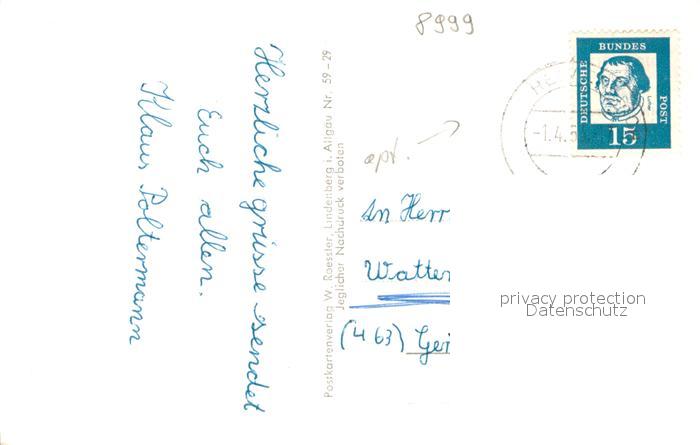 8999
Herzliche grüsse sendet
Euch allen.
Klaus Poltermann
Postkartenverlag W. Roessler, Lindenberg i. Allgäu Nr. 59-29
Jeglicher Nachdruck verboten
DEUTSCHE
BUNDES
POST
15
-1.4.
An Herr
Watter
(463) Gei
privacy protection
Datenschutz